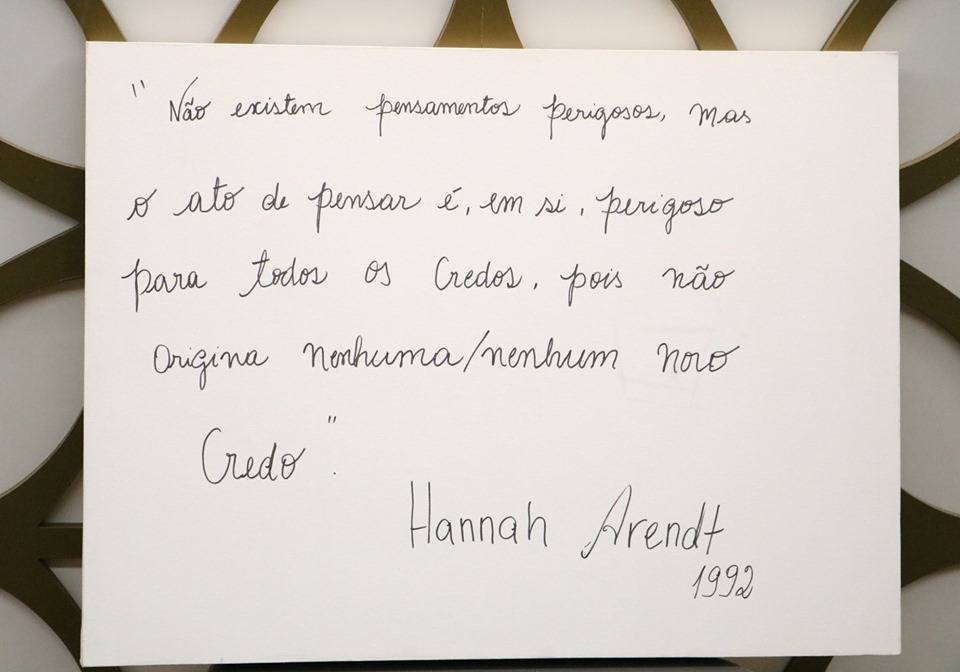 " Não existem pensamentos perigosos, mas
o ato de pensar é, em si, perigoso
para todos os Credos, pois não
origina nenhuma/nenhum novo
Credo".
Hannah Arendt
1992